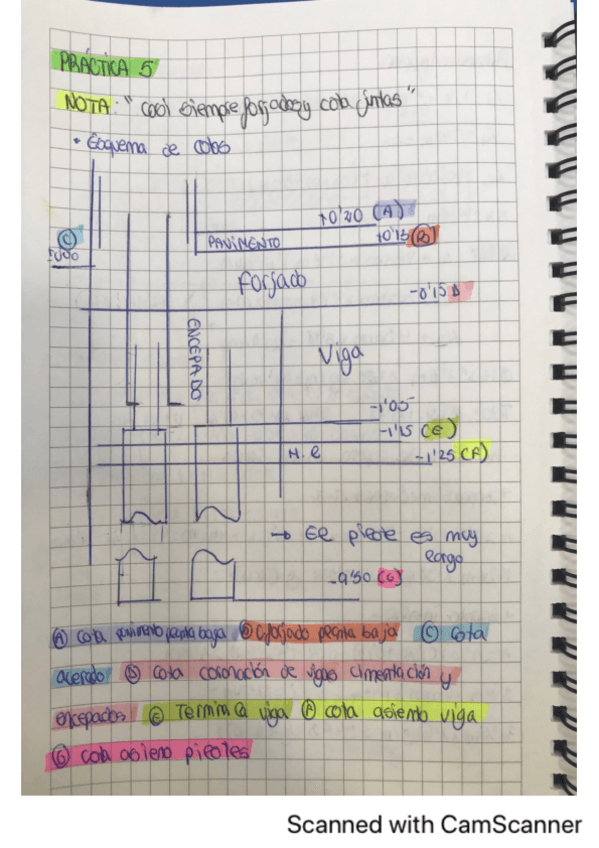 PRÁCTICA 5
NOTA: "casi siempre forjados y cota juntas"
• Esquema de cotas
+0'20 (A)
PAVIMENTO +0'15 (B)
(C)
Forjado
-0'15 D
ENCEPADO
Viga
-1'05
-1'15 (E)
H.L
-1'25 (F)
→ El pilote es muy
largo
-9'50 (G)
(A) cota pavimento planta baja (B) C.forjado planta baja (C) cota
acerado (D) cota coronación de vigas cimentación y
encepados (E) Termina viga (F) cota asiento viga
(G) cota asiento pilotes
Scanned with CamScanner